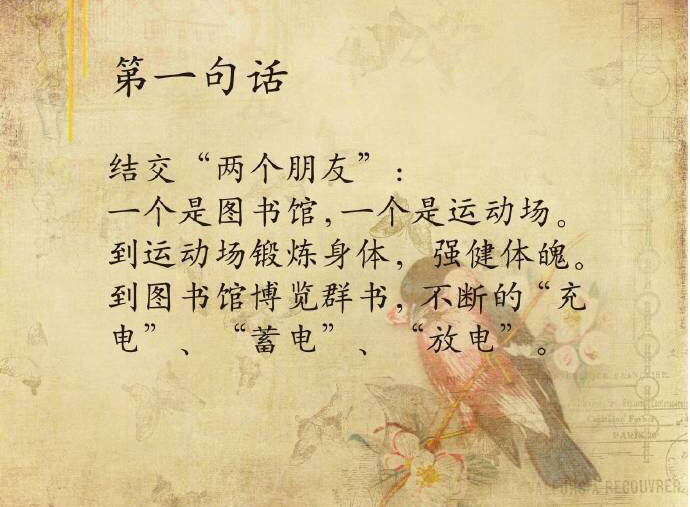 第一句话
结交“两个朋友”:
一个是图书馆,一个是运动场。
到运动场锻炼身体,强健体魄。
到图书馆博览群书,不断的“充
电”、“蓄电”、“放电”。
PARIS
VALEURS A RECOUVRER